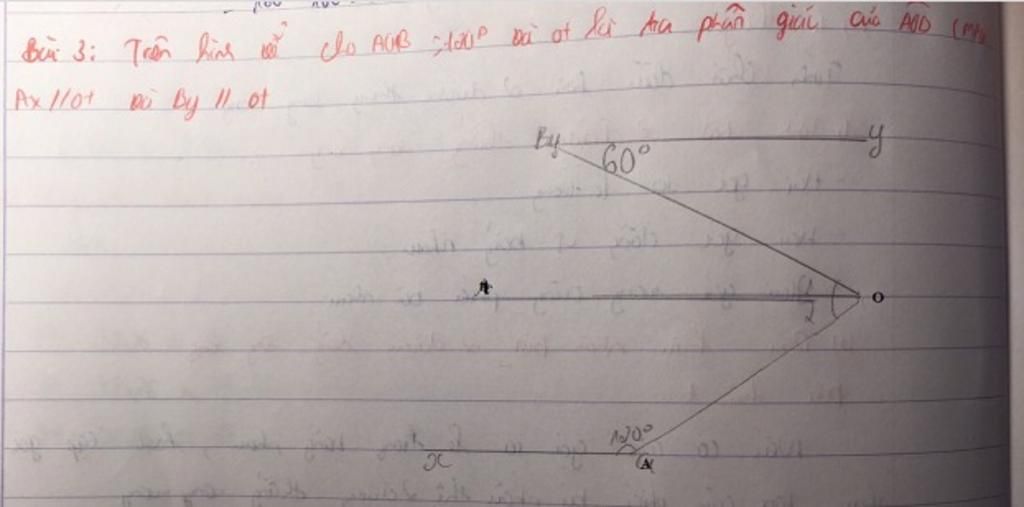 Bài 3: Trên hình vẽ cho AOB = 120° và ot là tia phân giác của AOB
Ax // ot và By // ot
By y
60°
t 1 O
2
120°
x A